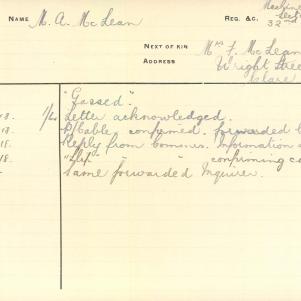 Machine
NAME M. A. McLean REG. &C. Sect
32nd
NEXT OF KIN Mrs F. McLean
ADDRESS Wright Stree
Clare
"Gassed".
18. 1/60 Letter acknowledged.
18. P/Cable confirmed. forwarded
18. Reply from Comons. Information
18. " " confirming ca
Same forwarded Inquirer.